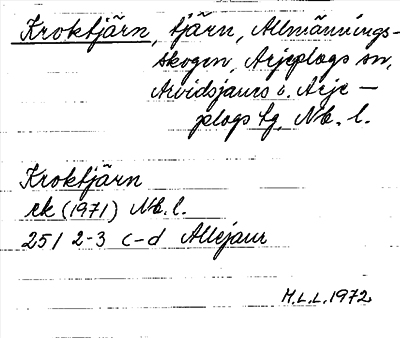 Kroktjärn, tjärn, Allmännings-
skogen, Arjeplogs sn,
Arvidsjaurs o. Arje-
plogs tg, Nb. l.
Kroktjärn
rk (1971) Nb. l.
251 2-3 c-d Allejaur
M.L.L. 1972